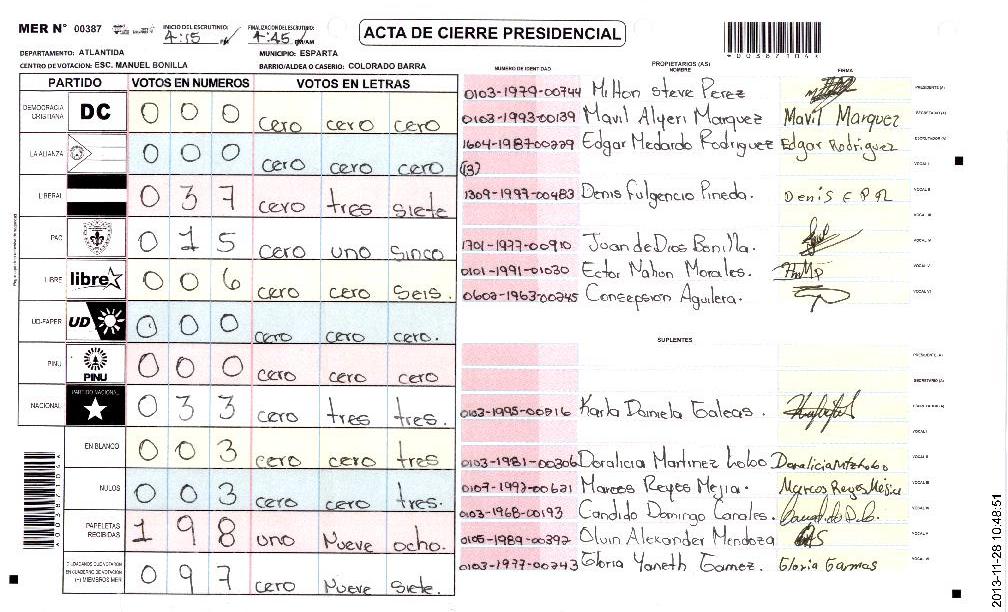 MER N° 00387
INICIO DEL ESCRUTINIO: 4:15
FINALIZACION ESCRUTINIO: 4:45 PM/AM
ACTA DE CIERRE PRESIDENCIAL
DEPARTAMENTO: ATLANTIDA
MUNICIPIO: ESPARTA
CENTRO DE VOTACION: ESC. MANUEL BONILLA
BARRIO/ALDEA O CASERIO: COLORADO BARRA
PARTIDO VOTOS EN NUMEROS VOTOS EN LETRAS
DEMOCRACIA CRISTIANA DC 0 0 0 cero cero cero
LA ALIANZA 0 0 0 cero cero cero
LIBERAL 0 3 7 cero tres siete
PAC 0 1 5 cero uno sinco
LIBRE libre 0 0 6 cero cero seis.
UD-FAPER UD 0 0 0 cero cero cero.
PINU PINU 0 0 0 cero cero cero
NACIONAL PARTIDO NACIONAL 0 3 3 cero tres tres.
EN BLANCO 0 0 3 cero cero tres
NULOS 0 0 3 cero cero tres.
PAPELETAS RECIBIDAS 1 9 8 uno Nueve ocho.
CIUDADANOS QUE VOTARON EN CUADERNO DE VOTACION (+) MIEMBROS MER 0 9 7 cero Nueve siete.
NUMERO DE IDENTIDAD
PROPIETARIOS (AS)
NOMBRE
FIRMA
0103-1979-00744 Milton Steve Perez PRESIDENTE (A)
0103-1993-00139 Mavil Alyeri Marquez Mavil Marquez SECRETARIO (A)
1604-1987-00229 Edgar Medardo Rodriguez Edgar Rodriguez ESCRUTADOR (A)
(13) VOCAL I
1309-1997-00483 Denis Fulgencio Pineda. Denis VOCAL II
VOCAL III
1701-1977-00910 Juan de Dios Bonilla. VOCAL IV
0101-1991-01030 Ector Nahon Morales. VOCAL V
0603-1963-00245 Consepsion Aguilera. VOCAL VI
SUPLENTES
PRESIDENTE (A)
SECRETARIO (A)
0103-1995-00916 Karla Daniela Galeas. ESCRUTADOR (A)
VOCAL I
0103-1981-00306 Doralicia Martinez Lobo Doralicia Mtz Lobo VOCAL II
0107-1993-00621 Marcos Reyes Mejia. Marcos Reyes Mejia VOCAL III
0103-1968-00193 Candido Domingo Canales. VOCAL IV
0105-1989-00392 Olvin Alexander Mendoza VOCAL V
0103-1977-00243 Gloria Yaneth Gamez. Gloria Gamas VOCAL VI
2013-11-28 10:48:51